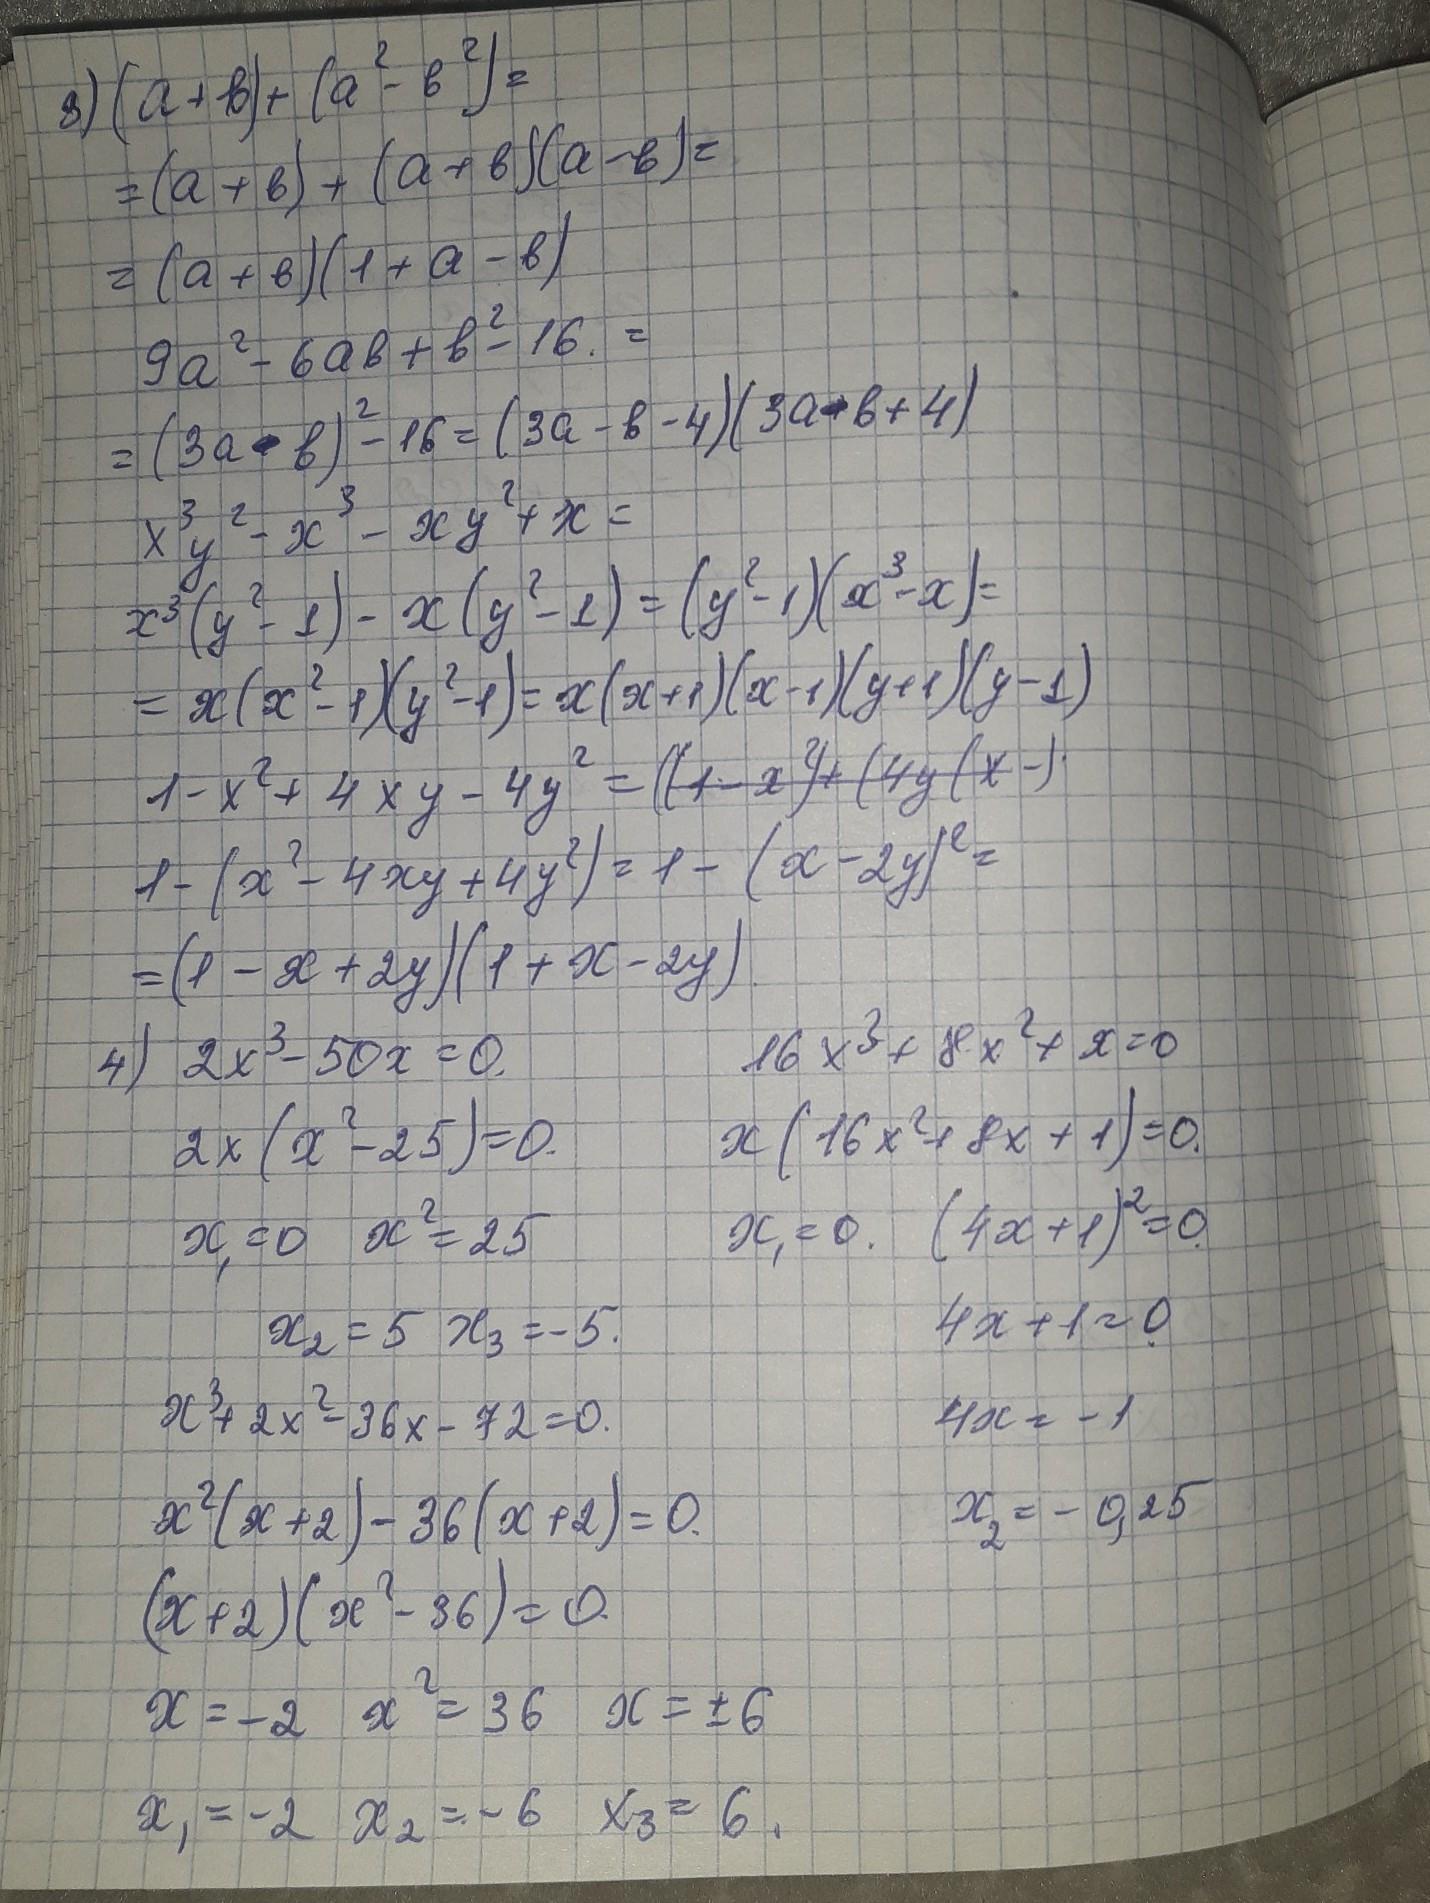 3) (a+b)+(a²-b²)=
=(a+b)+(a+b)(a-b)=
=(a+b)(1+a-b)
9a²-6ab+b²-16.=
=(3a-b)²-16=(3a-b-4)(3a-b+4)
x³y²-x³-xy²+x=
x³(y²-1)-x(y²-1)=(y²-1)(x³-x)=
=x(x²-1)(y²-1)=x(x+1)(x-1)(y+1)(y-1)
1-x²+4xy-4y²=((1-x²)+(4y(x-).
1-(x²-4xy+4y²)=1-(x-2y)²=
=(1-x+2y)(1+x-2y).
4) 2x³-50x=0.
2x(x²-25)=0.
x₁=0 x²=25
x₂=5 x₃=-5.
x³+2x²-36x-72=0.
x²(x+2)-36(x+2)=0.
(x+2)(x²-36)=0.
x=-2 x²=36 x=±6
x₁=-2 x₂=-6 x₃=6.
16x³+8x²+x=0
x(16x²+8x+1)=0.
x₁=0. (4x+1)²=0.
4x+1=0.
4x=-1
x₂=-0,25